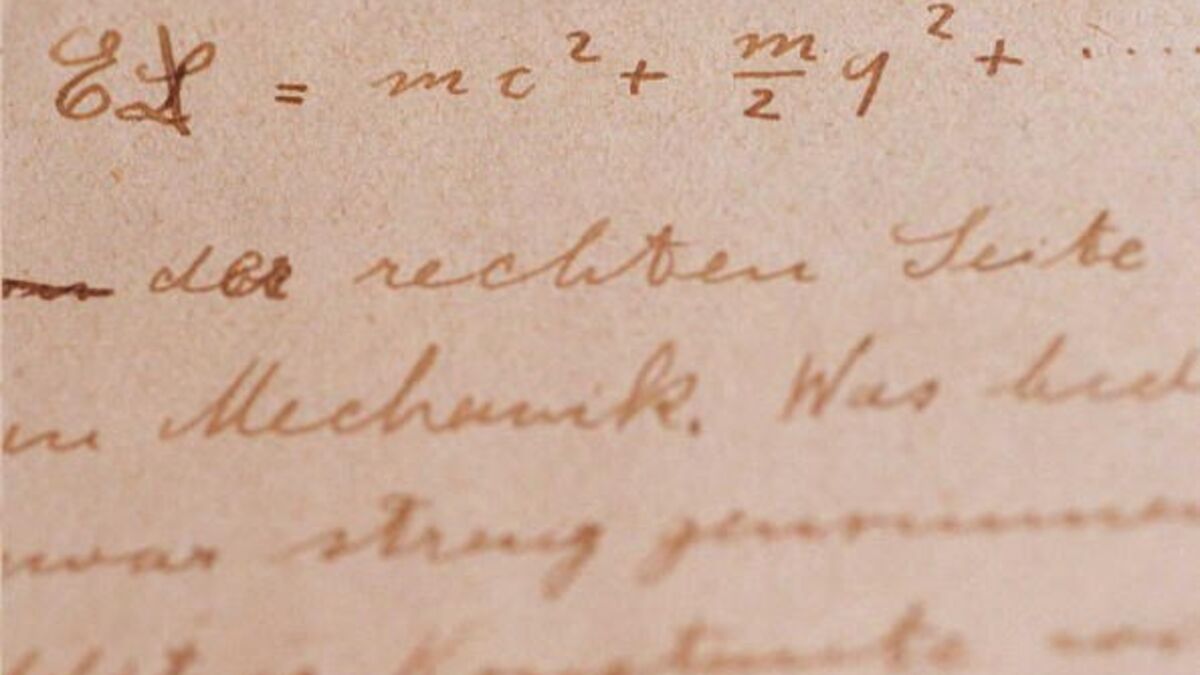 E = mc² + m/2 q² + ....
der rechten Seite
Mechanik. Was
zwar streng genommen
Konstante